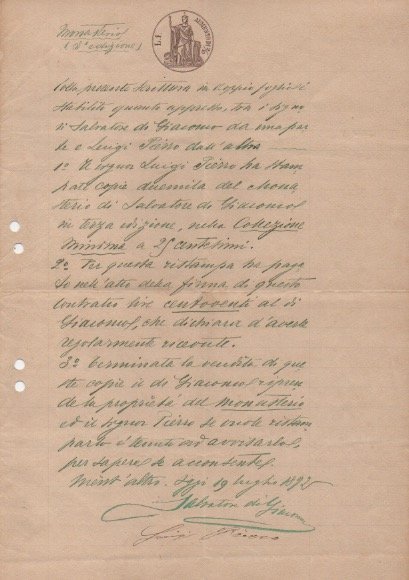 Monastero
(3ª edizione)
L.1
Colla presente scrittura in doppio foglio si
stabilisce quanto appresso, tra i signo
ri Salvatore di Giacomo da una par
te e Luigi Pierro dall'altra
1º Il signor Luigi Pierro ha stam
pate copie duemila del Mona
stero di Salvatore di Giacomo
in terza edizione, nella Collezione
Minima a 25 centesimi.
2º Per questa ristampa ha paga
to nell'atto della firma di questo
contratto lire centoventi al di
Giacomo, che dichiara d'averle
regolarmente ricevute.
3º Terminata la vendita di que
ste copie il di Giacomo repren
de la proprietà del Monasterio
ed il signor Pierro se vuole ristam
parlo è tenuto ad avvisarlo,
per sapere se acconsente.
Nient'altro. Oggi 19 luglio 1892
Salvatore di Giacomo
Luigi Pierro